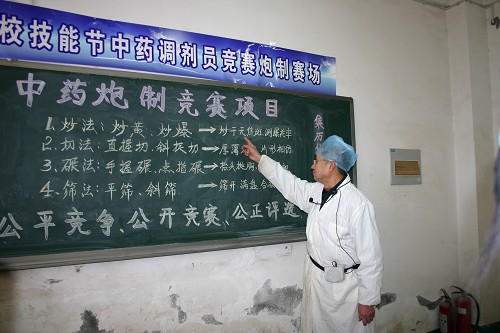 校技能节中药调剂员竞赛炮制赛场
中药炮制竞赛项目
1.炒法:炒黄、炒爆→炒干无焦斑
2.切法:直握切、斜扶切→厚薄 片形相仿
3.碾法:手握碾、点指碾→
4.筛法:平筛、斜筛→筛开满盘
公平竞争、公开竞赛、公正评选